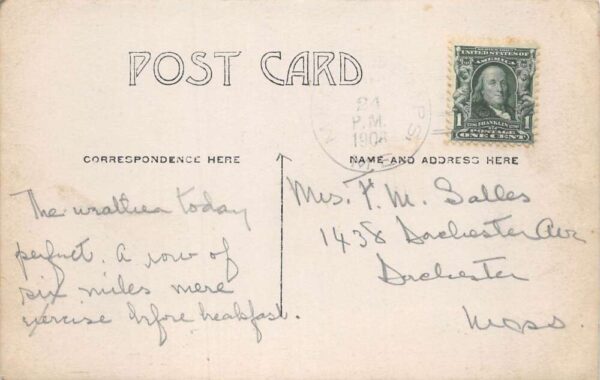 POST CARD
24
P.M.
1908
SERIES 1902
UNITED STATES OF
AMERICA
FRANKLIN
1 1
POSTAGE
ONE CENT
CORRESPONDENCE HERE
NAME AND ADDRESS HERE
The weather today
perfect. A row of
six miles mere
exercise before breakfast.
Mrs. F. M. Salles
1438 Dorchester Ave
Dorchester
Mass.